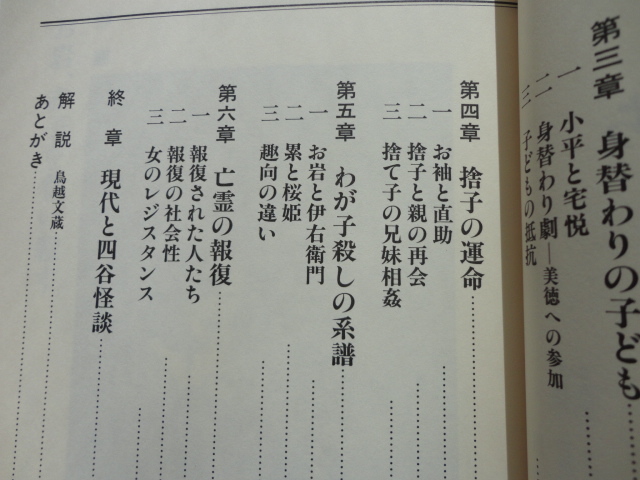 第三章 身替わりの子ども
一 小平と宅悦
二 身替わり劇―美徳への参加
三 子どもの抵抗
第四章 捨子の運命
一 お袖と直助
二 捨子と親の再会
三 捨て子の兄妹相姦
第五章 わが子殺しの系譜
一 お岩と伊右衛門
二 累と桜姫
三 趣向の違い
第六章 亡霊の報復
一 報復された人たち
二 報復の社会性
三 女のレジスタンス
終章 現代と四谷怪談
解説 鳥越文蔵
あとがき